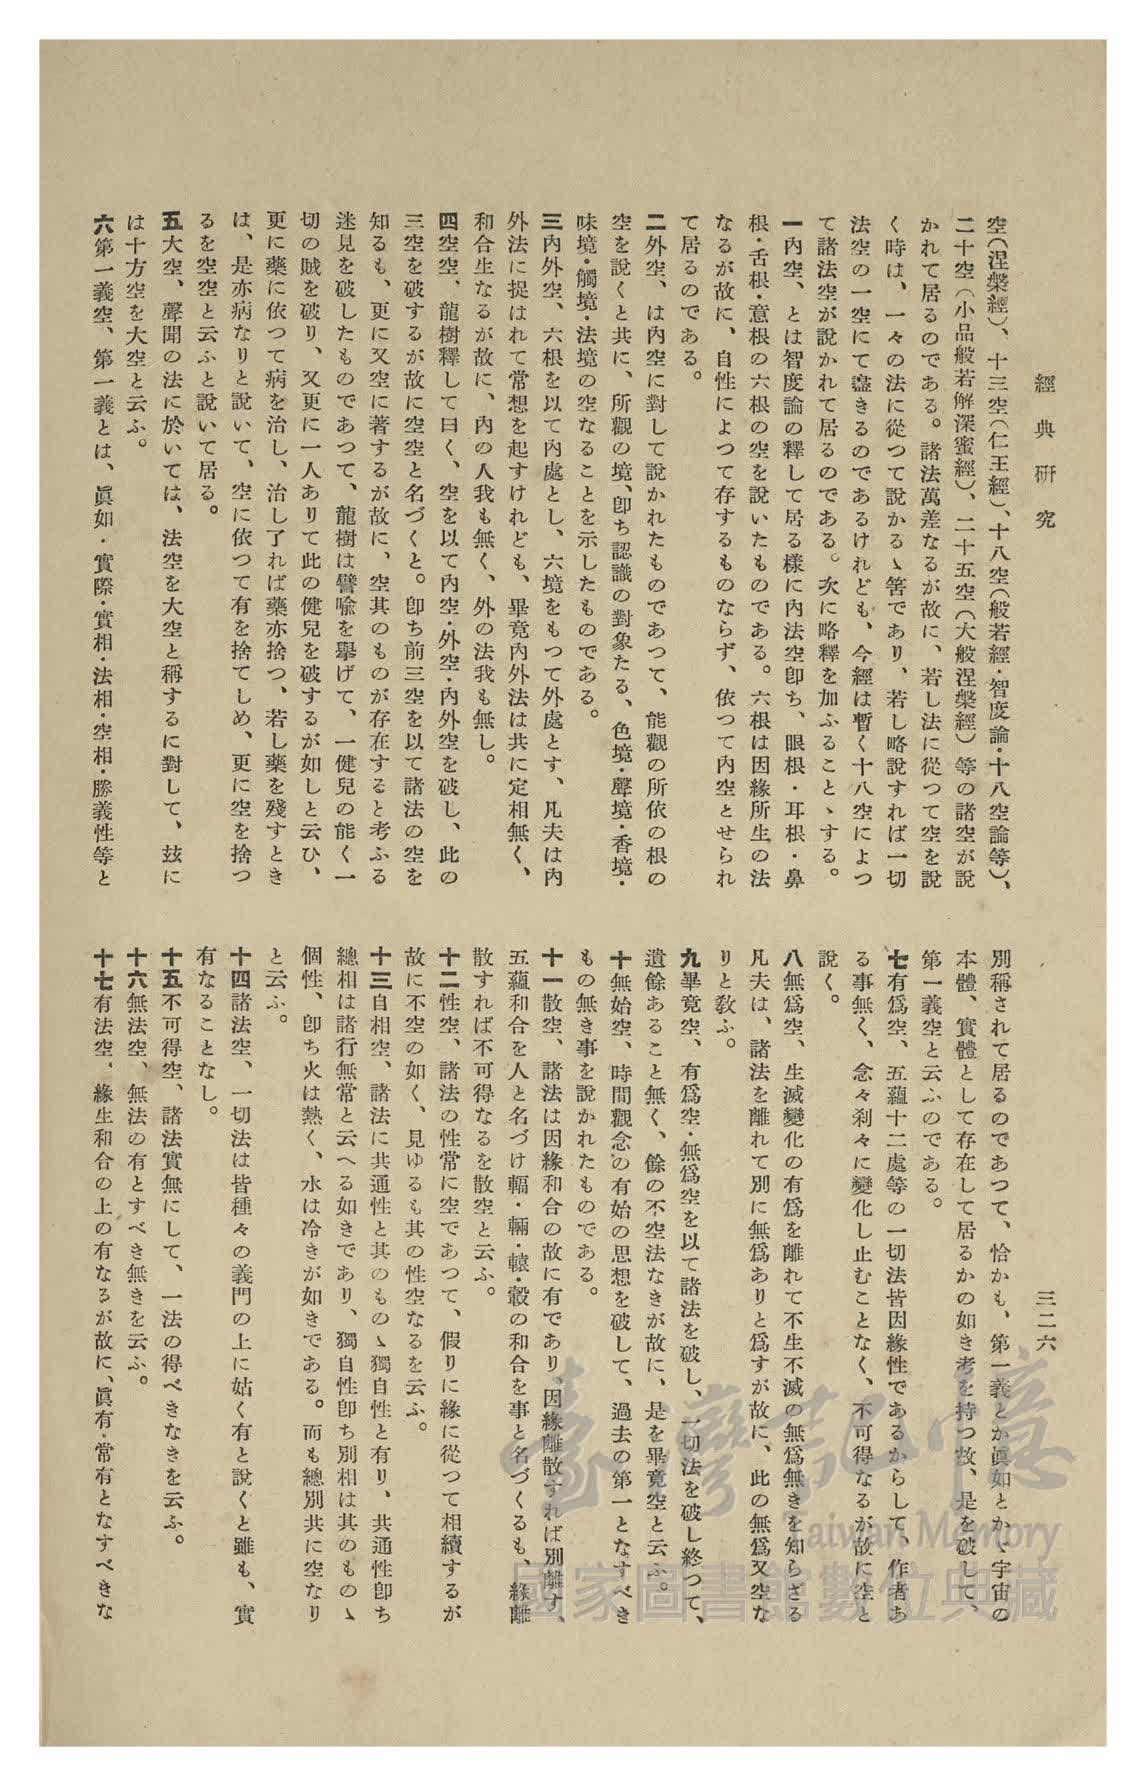 經典研究
三二六
空(涅槃經)、十三空(仁王經)、十八空(般若經・智度論・十八空論等)、
二十空(小品般若解深蜜經)、二十五空(大般涅槃經)等の諸空が說
かれて居るのである。諸法萬差なるが故に、若し法に從つて空を說
く時は、一々の法に從つて說かるゝ筈であり、若し略說すれば一切
法空の一空にて盡きるのであるけれども、今經は暫く十八空によつ
て諸法空が說かれて居るのである。次に略釋を加ふることゝする。
一內空、とは智度論の釋して居る樣に內法空卽ち、眼根・耳根・鼻
根・舌根・意根の六根の空を說いたものである。六根は因緣所生の法
なるが故に、自性によつて存するものならず、依つて內空とせられ
て居るのである。
二外空、は內空に對して說かれたものであつて、能觀の所依の根の
空を說くと共に、所觀の境、卽ち認識の對象たる、色境・聲境・香境・
味境・觸境・法境の空なることを示したものである。
三內外空、六根を以て內處とし、六境をもつて外處とす、凡夫は內
外法に捉はれて常想を起すけれども、畢竟內外法は共に定相無く、
和合生なるが故に、內の人我も無く、外の法我も無し。
四空空、龍樹釋して曰く、空を以て內空・外空・內外空を破し、此の
三空を破するが故に空空と名づくと。卽ち前三空を以て諸法の空を
知るも、更に又空に著するが故に、空其のものが存在すると考ふる
迷見を破したものであつて、龍樹は譬喩を擧げて、一健兒の能く一
切の賊を破り、又更に一人ありて此の健兒を破するが如しと云ひ、
更に藥に依つて病を治し、治し了れば藥亦捨つ、若し藥を殘すとき
は、是亦病なりと說いて、空に依つて有を捨てしめ、更に空を捨つ
るを空空と云ふと說いて居る。
五大空、聲聞の法に於いては、法空を大空と稱するに對して、玆に
は十方空を大空と云ふ。
六第一義空、第一義とは、眞如・實際・實相・法相・空相・勝義性等と
別稱されて居るのであつて、恰かも、第一義とか眞如とか、宇宙の
本體、實體として存在して居るかの如き考を持つ故、是を破して、
第一義空と云ふのである。
七有爲空、五蘊十二處等の一切法皆因緣性であるからして、作者あ
る事無く、念々刹々に變化し止むことなく、不可得なるが故に空と
說く。
八無爲空、生滅變化の有爲を離れて不生不滅の無爲無きを知らざる
凡夫は、諸法を離れて別に無爲ありと爲すが故に、此の無爲又空な
りと敎ふ。
九畢竟空、有爲空・無爲空を以て諸法を破し、一切法を破し終つて、
遺餘あること無く、餘の不空法なきが故に、是を畢竟空と云ふ。
十無始空、時間觀念の有始の思想を破して、過去の第一となすべき
もの無き事を說かれたものである。
十一散空、諸法は因緣和合の故に有であり、因緣離散すれば別離す、
五蘊和合を人と名づけ輻・輞・轅・轂の和合を事と名づくるも、緣離
散すれば不可得なるを散空と云ふ。
十二性空、諸法の性常に空であつて、假りに緣に從つて相續するが
故に不空の如く、見ゆるも其の性空なるを云ふ。
十三自相空、諸法に共通性と其のものゝ獨自性と有り、共通性卽ち
總相は諸行無常と云へる如きであり、獨自性卽ち別相は其のものゝ
個性、卽ち火は熱く、水は冷きが如きである。而も總別共に空なり
と云ふ。
十四諸法空、一切法は皆種々の義門の上に姑く有と說くと雖も、實
有なることなし。
十五不可得空、諸法實無にして、一法の得べきなきを云ふ。
十六無法空、無法の有とすべき無きを云ふ。
十七有法空、緣生和合の上の有なるが故に、眞有・常有となすべきな
臺灣記憶
Taiwan Memory
國家圖書館數位典藏